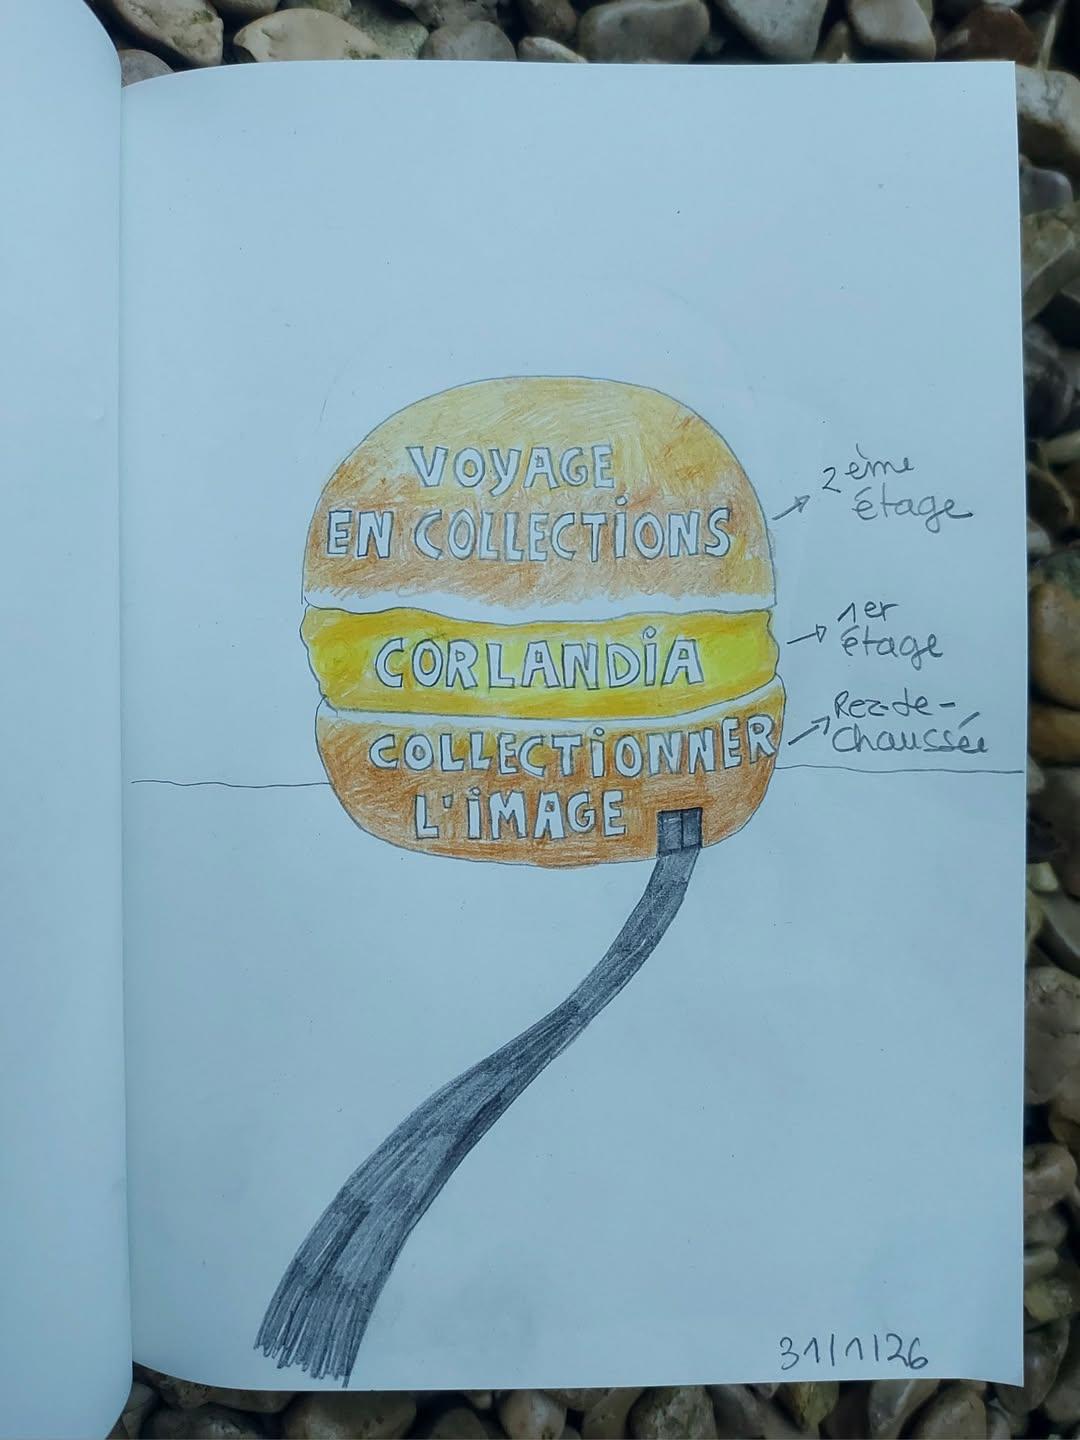 VOYAGE
EN COLLECTIONS
2ème
étage
CORLANDiA
1er
étage
COLLECTiONNER
L'iMAGE
Rez-de-
chaussée
31/1/26